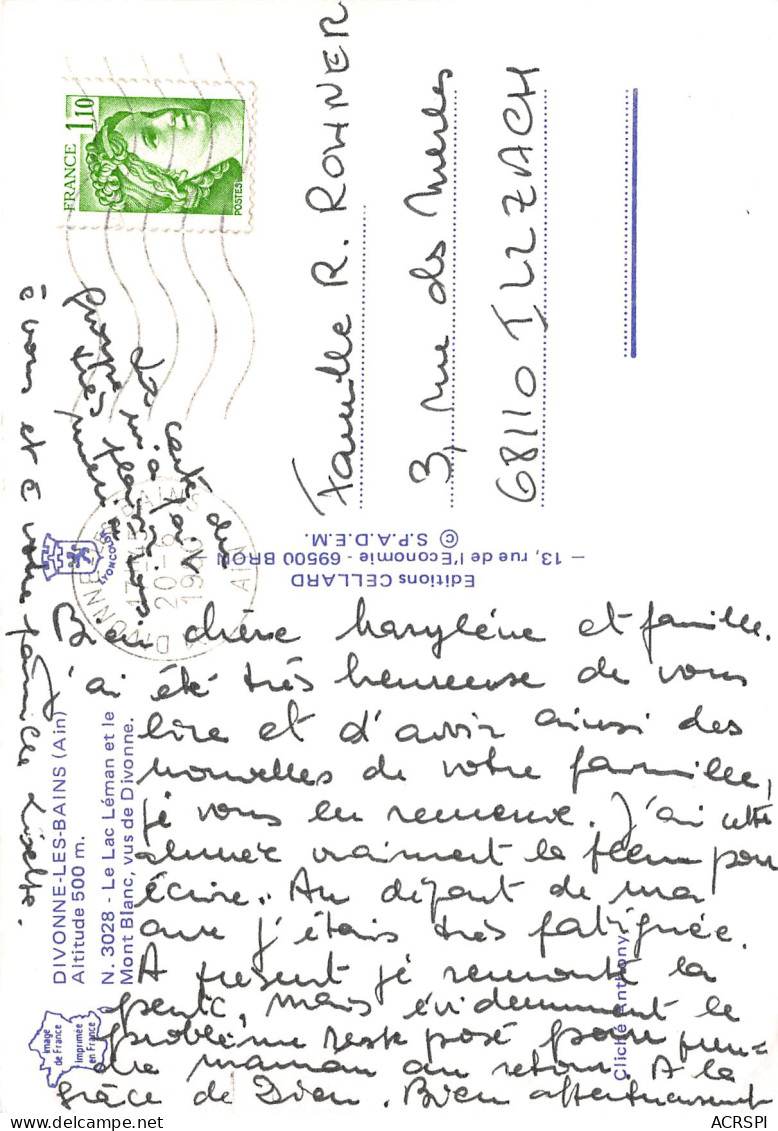 FRANCE
1,10
POSTES
Famille R. ROHNER
3, rue des Merles
68110 ILLZACH
Editions CELLARD
— 13, rue de l'Economie - 69500 BRON —
© S.P.A.D.E.M.
LYONCOLOR
DIVONNE LES BAINS
20-6
1980
AIN
DIVONNE-LES-BAINS (Ain)
Altitude 500 m.
N. 3028 - Le Lac Léman et le
Mont Blanc, vus de Divonne.
Image
de France
Imprimée
en France
Cliché Anthony
Bien chère Marylène et famille.
J'ai été très heureuse de vous
lire et d'avoir ainsi des
nouvelles de votre famille,
je vous en remercie. J'ai cette
année vraiment la flemme pour
écrire. Au départ de ma
cure j'étais très fatiguée.
A présent je remonte la
pente, mais évidemment le
problème reste posé pour pren-
dre maman au retour. A la
grâce de Dieu. Bien affectueusement
à vous et à votre famille Lisette.
La carte du
m'a fait
très plaisir
merci
ACRSPI